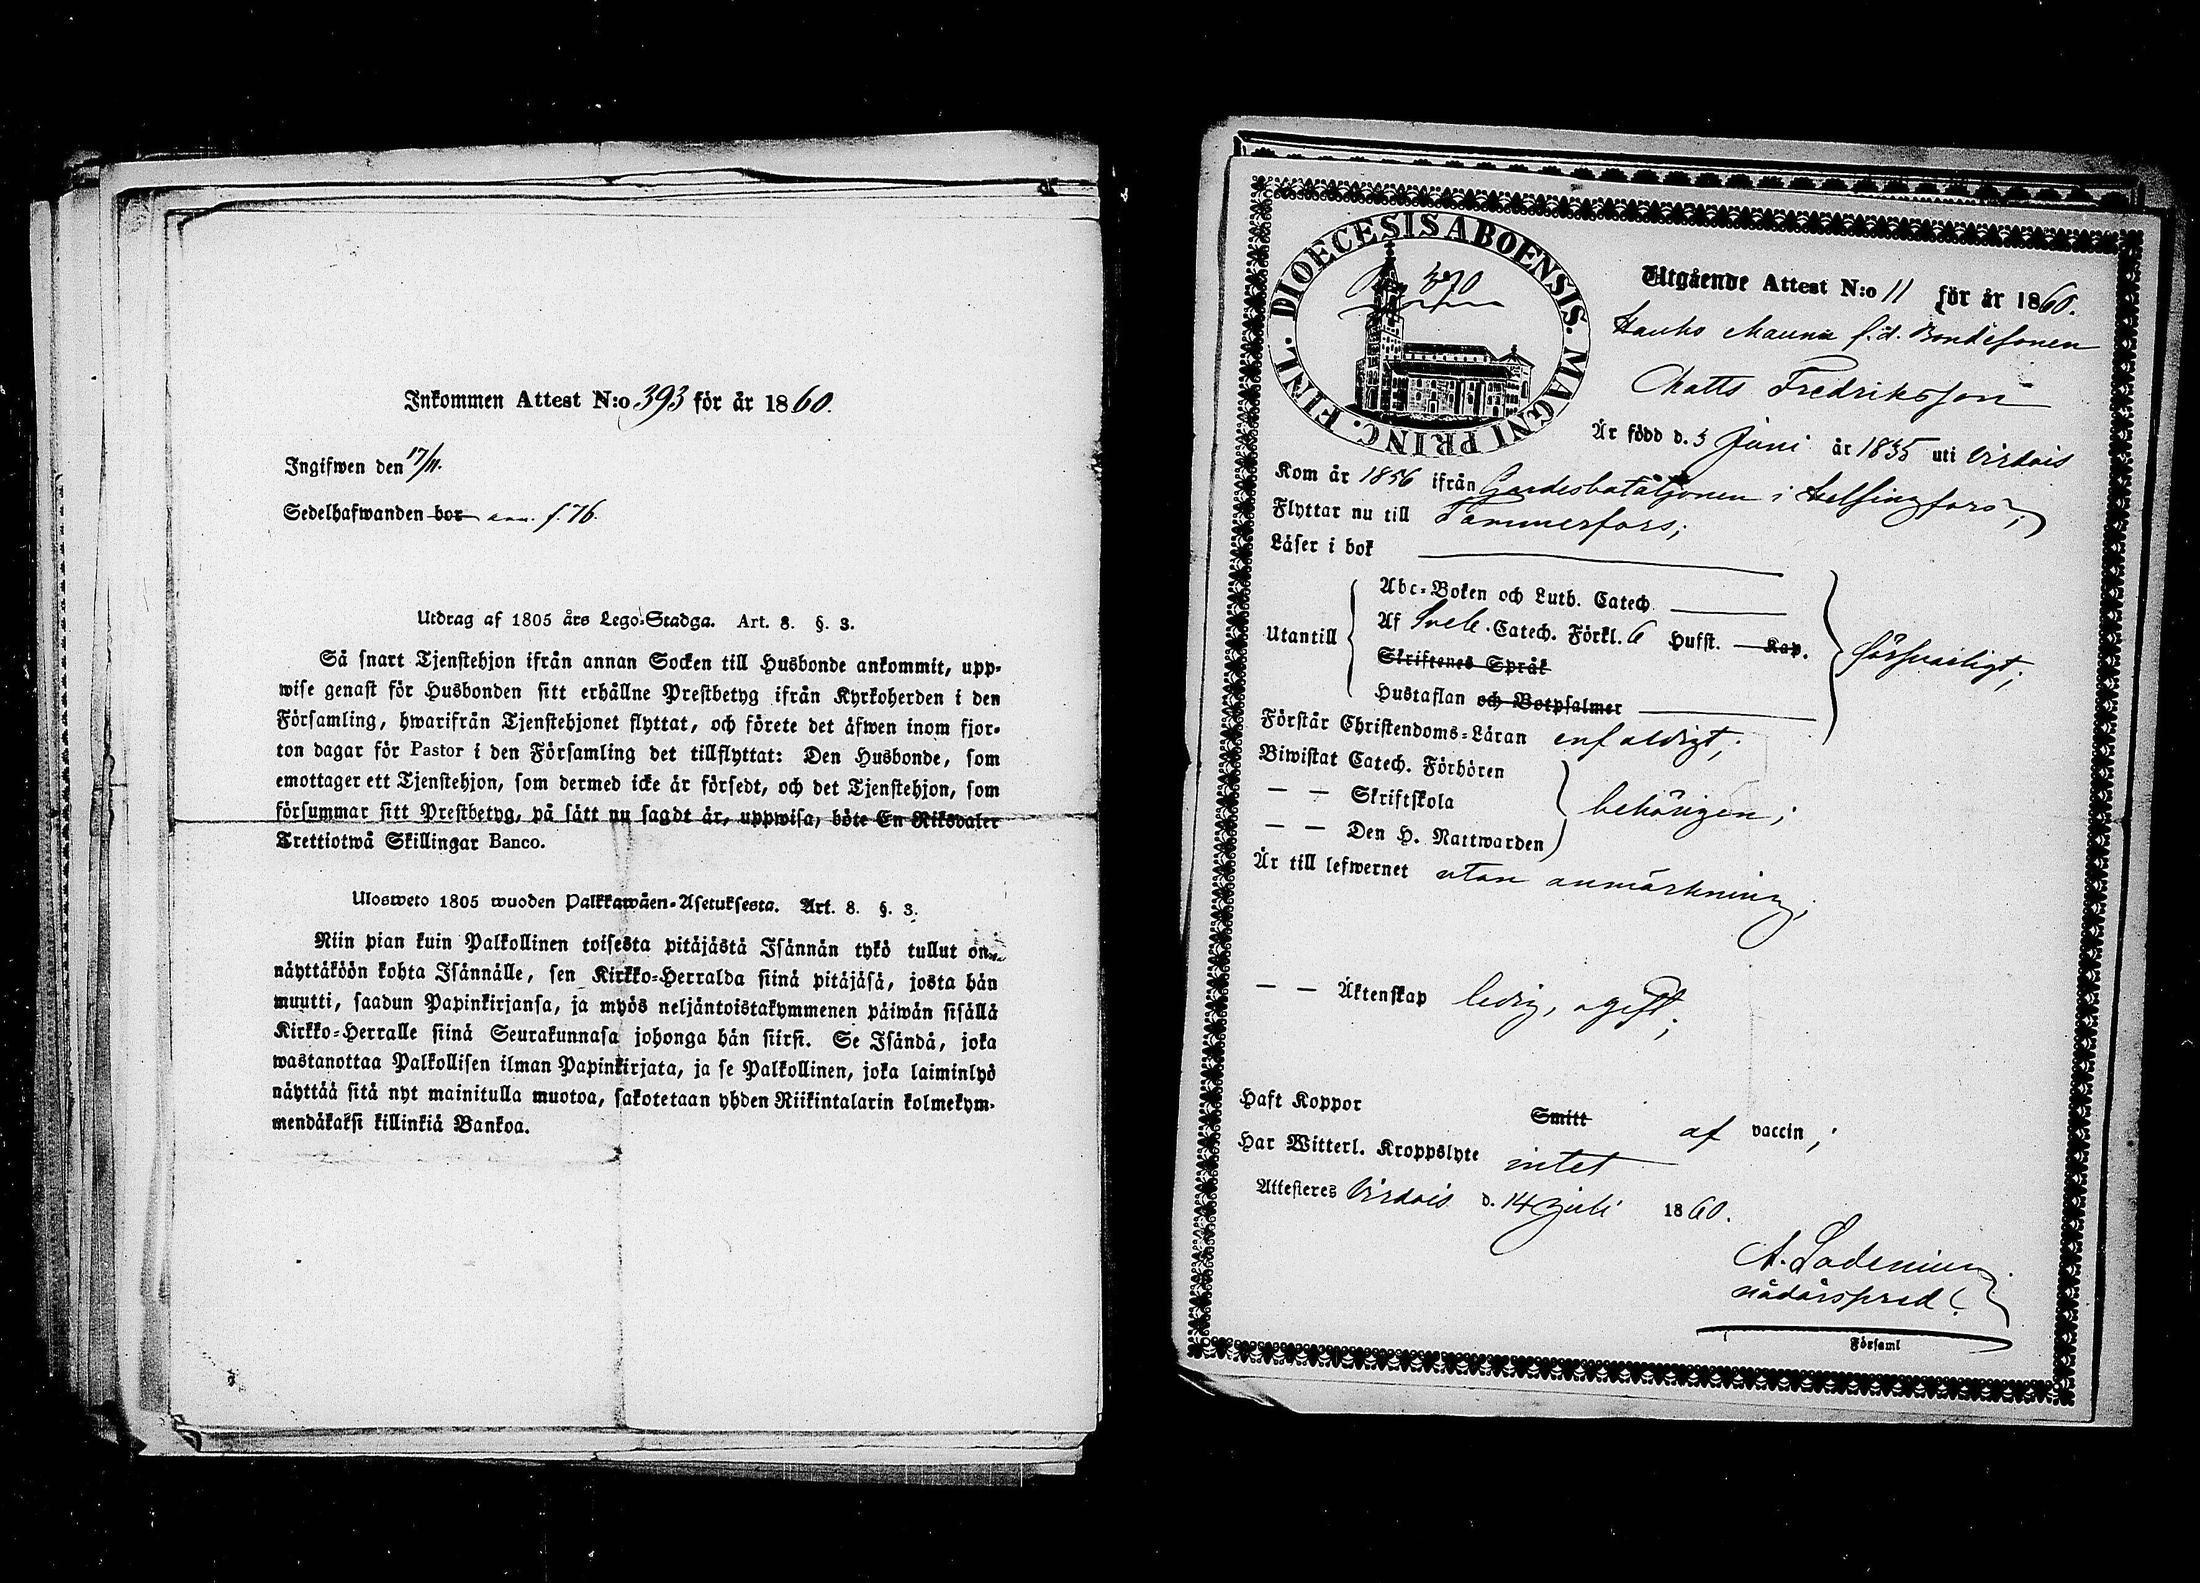 Inkommen Attest N:o 393 för år 1860.
Ingifwen den 17/11.
Sedelhafwanden bor ann. f. 76.
Utdrag af 1805 års Lego-Stadga. Art. 8. §. 3.
Så snart Tjenstehjon ifrån annan Socken till Husbonde ankommit, upp-
wise genast för Husbonden sitt erhållne Prestbetyg ifrån Kyrkoherden i den
Församling, hwarifrån Tjenstehjonet flyttat, och förete det äfwen inom fjor-
ton dagar för Pastor i den Församling det tillflyttat: Den Husbonde, som
emottager ett Tjenstehjon, som dermed icke är försedt, och det Tjenstehjon, som
försummar sitt Prestbetyg, på sätt nu sagdt är, uppwisa, böte En Riksdaler
Trettiotwå Skillingar Banco.
Ulosweto 1805 wuoden Palkkawäen-Asetuksesta. Art. 8. §. 3.
Niin pian kuin Palkollinen toisesta pitäjästä Isännän tykö tullut on,
näyttäköön kohta Isännälle, sen Kirkko-Herralda siinä pitäjäsä, josta hän
muutti, saadun Papinkirjansa, ja myös neljäntoistakymmenen päiwän sisällä
Kirkko-Herralle siinä Seurakunnasa johonga hän siirsi. Se Isändä, joka
wastanottaa Palkollisen ilman Papinkirjata, ja se Palkollinen, joka laiminlyö
näyttää sitä nyt mainitulla muotoa, sakotetaan yhden Riikintalarin kolmekym-
mendäkaksi killinkiä Bankoa.
DIOECESIS ABOENSIS. MAGNI PRINC. FINL.
Utgående Attest N:o 11 för år 1860.
Hauho Mauna f.d. Bondesonen
Matts Fredriksson
Är född d. 3 Juni år 1835 uti Virdois
Kom år 1856 ifrån Gardesbataljonen i Helsingfors;
Flyttar nu till Tammerfors;
Läser i bok
Utantill
Abc-Boken och Luth. Catech.
Af Sveb. Catech. Förkl. 6 Hufst. Kap.
Skriftenes Språk
Hustaflan och Botpsalmer
försvarligt;
Förstår Christendoms-Läran enfaldigt;
Biwistat Catech. Förhören
— — Skriftskola
— — Den H. Nattwarden
behörigen;
Är till lefwernet utan anmärkning;
— — Äktenskap ledig, ogift;
Haft Koppor Smitt af vaccin;
Har Witterl. Kroppslyte intet
Attesteras Virdois d. 14 Juli 1860.
A. Ladenius
nådårspred.
Församl